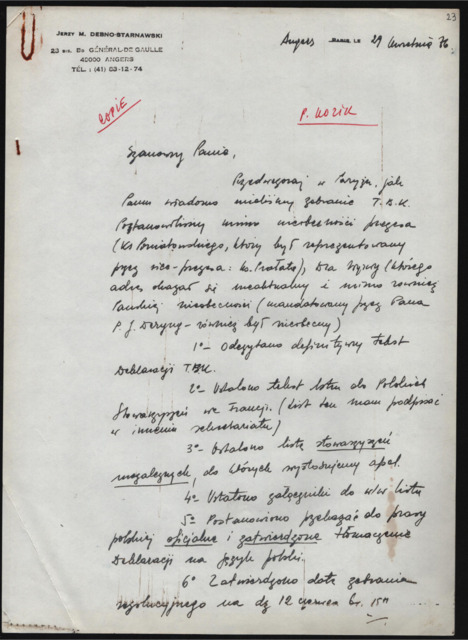 23
JERZY M. DEBNO-STARNAWSKI
23 BIS, BD GÉNÉRAL-DE GAULLE
49000 ANGERS
TÉL. : (41) 03-12-74
Angers PARIS, LE 29 kwietnia 76
COPIE
P. KOZIK
Szanowny Panie,
Przedwczoraj w Paryżu, jak
Panu wiadomo mieliśmy zebranie T.B.K.
Postanowiliśmy mimo nieobecności prezesa
(Ks Poniatowskiego, który był reprezentowany
przez vice-prezesa: ), Dra (którego
adres okazał się nieaktualny i mimo również
Pańskiej nieobecności (mandatowany przez Pana
P. J. Deryng - również był nieobecny)
1° - Odczytano definitywny tekst
Deklaracji
2° - Ustalono tekst listu do Polskich
Stowarzyszeń we Francji. (List ten mam podpisać
w imieniu sekretariatu)
3° - Ustalono listę stowarzyszeń
, do których wystosujemy apel.
4° Ustalono załączniki do w/w listu
5° Postanowiono przekazać do prasy
polskiej oficjalne i zatwierdzone tłomaczenie
Deklaracji na język polski.
6° Zatwierdzono datę zebrania
na dz 12 czerwca br. 15h